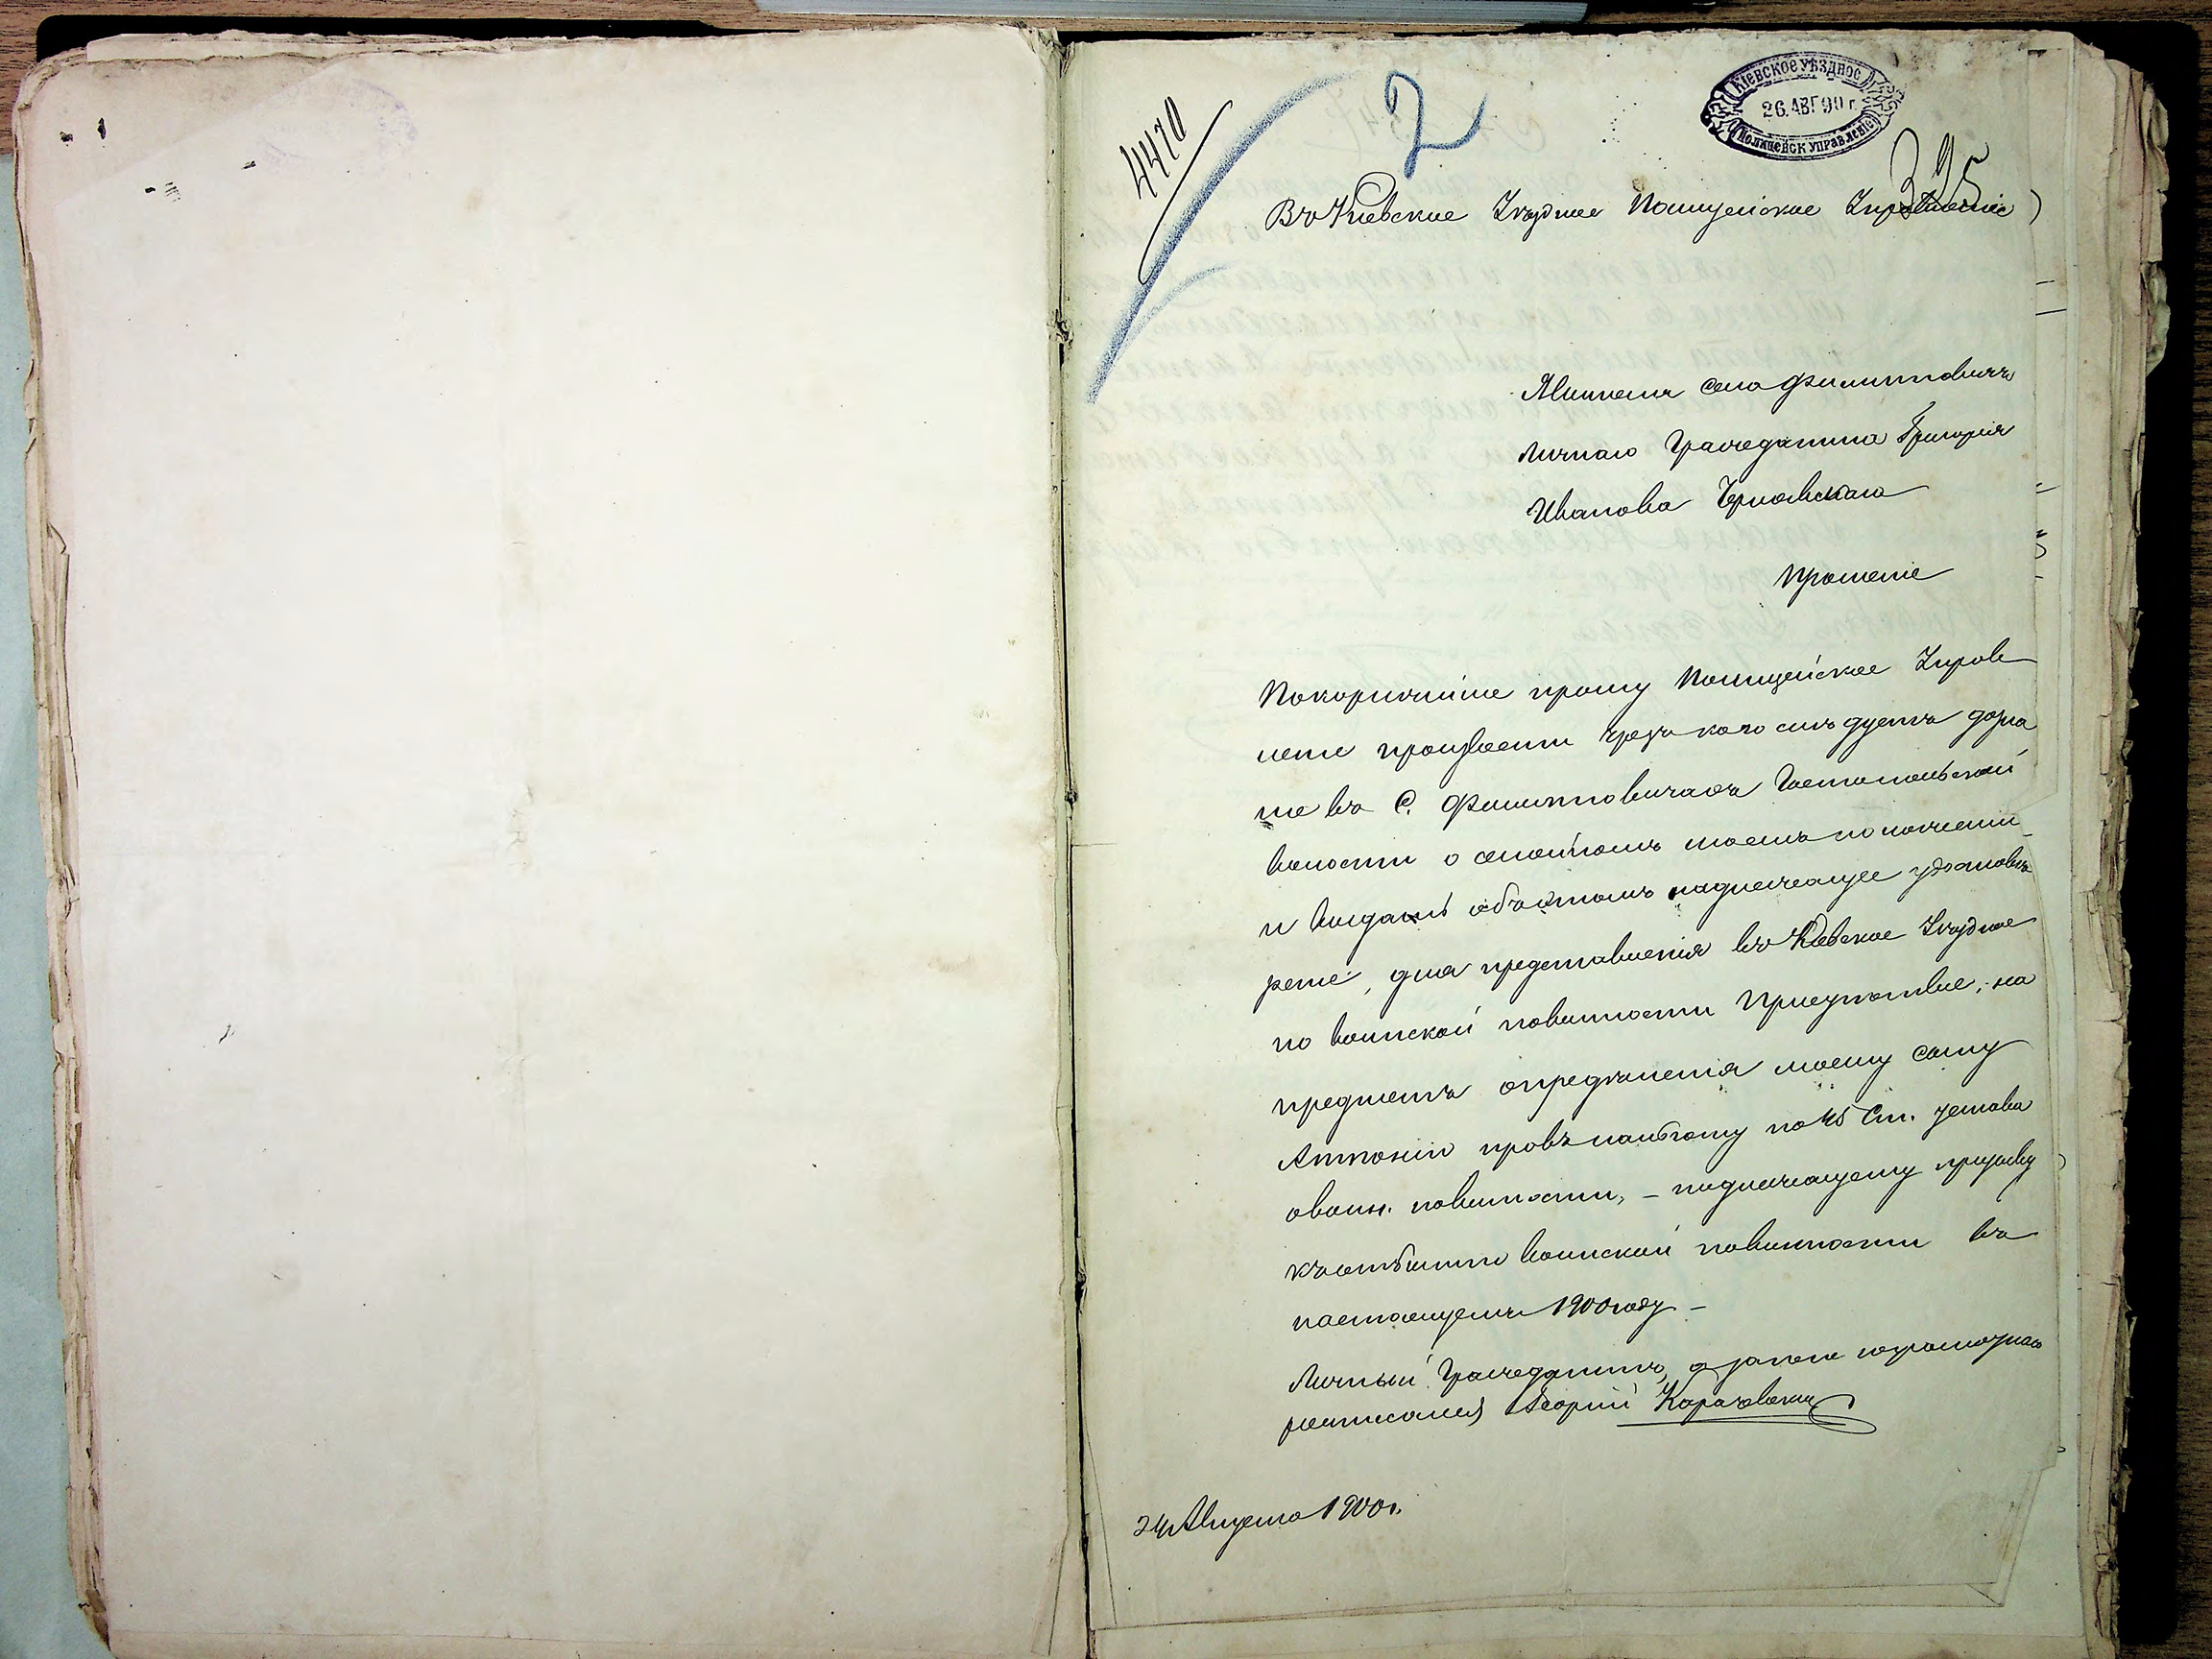 4470
2
КІЕВСКОЕ УѢЗДНОЕ
26. АВГ 900 г.
ПОЛИЦЕЙСК УПРАВЛЕНІЕ
395
Въ Кіевское Уѣздное Полицейское Управленіе
Жителя села Филипповичъ
личнаго Гражданина Григорія
Иванова
Прошеніе
Покорнѣйше прошу Полицейское Управ
леніе произвести чрезъ кого слѣдуетъ дозна
ніе въ С. Филипповичахъ Гостомельской
волости о семейномъ моемъ положеніи
и выдать объ этомъ надлежащее удостовѣ
реніе, для представленія въ Кіевское Уѣздное
по воинской повинности Присутствіе, на
предметъ опредѣленія моему сыну
Антонію по 45 Ст. устава
о воин. повинности, – подлежащему призыву
къ отбытію воинской повинности въ
настоящемъ 1900 году –
Личный Гражданинъ, а за него неграмотнаго
росписался Георгій Карачевскій
24 Августа 1900 г.